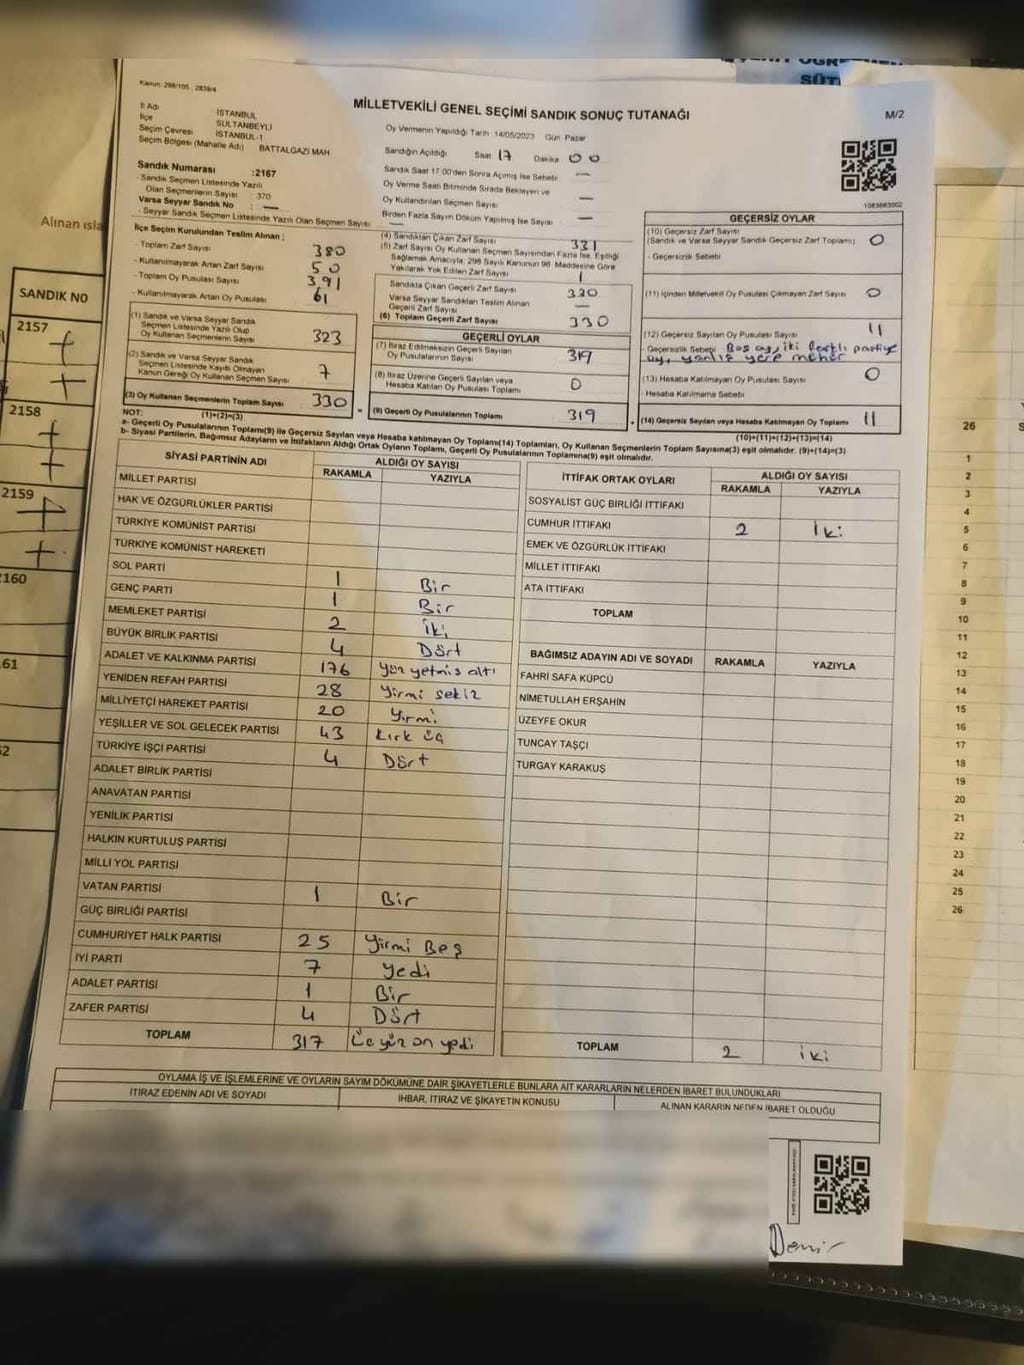 Kanun: 298/105 , 2839/4
MİLLETVEKİLİ GENEL SEÇİMİ SANDIK SONUÇ TUTANAĞI
M/2
İl Adı İSTANBUL
İlçe SULTANBEYLİ
Seçim Çevresi İSTANBUL-1
Seçim Bölgesi (Mahalle Adı) BATTALGAZİ MAH
Oy Vermenin Yapıldığı Tarih :14/05/2023 Gün :Pazar
Sandığın Açıldığı Saat 17 Dakika 00
Sandık Saat 17:00'den Sonra Açılmış İse Sebebi —
Oy Verme Saati Bitiminde Sırada Bekleyen ve
Oy Kullandırılan Seçmen Sayısı —
Birden Fazla Sayım Döküm Yapılmış İse Sayısı —
Sandık Numarası :2167
- Sandık Seçmen Listesinde Yazılı
Olan Seçmenlerin Sayısı 370
Varsa Seyyar Sandık No : —
- Seyyar Sandık Seçmen Listesinde Yazılı Olan Seçmen Sayısı —
İlçe Seçim Kurulundan Teslim Alınan ;
- Toplam Zarf Sayısı 380
- Kullanılmayarak Artan Zarf Sayısı 50
- Toplam Oy Pusulası Sayısı 391
- Kullanılmayarak Artan Oy Pusulası 61
(1) Sandık ve Varsa Seyyar Sandık
Seçmen Listesinde Yazılı Olup
Oy Kullanan Seçmenlerin Sayısı 323
(2) Sandık ve Varsa Seyyar Sandık
Seçmen Listesinde Kayıtlı Olmayan
Kanun Gereği Oy Kullanan Seçmen Sayısı 7
(3) Oy Kullanan Seçmenlerin Toplam Sayısı 330
(1)+(2)=(3)
(4) Sandıktan Çıkan Zarf Sayısı 331
(5) Zarf Sayısı Oy Kullanan Seçmen Sayısından Fazla İse, Eşitliği
Sağlamak Amacıyla, 298 Sayılı Kanunun 98. Maddesine Göre
Yakılarak Yok Edilen Zarf Sayısı 1
Sandıkta Çıkan Geçerli Zarf Sayısı 330
Varsa Seyyar Sandıktan Teslim Alınan
Geçerli Zarf Sayısı —
(6) Toplam Geçerli Zarf Sayısı 330
GEÇERLİ OYLAR
(7) İtiraz Edilmeksizin Geçerli Sayılan
Oy Pusulalarının Sayısı 319
(8) İtiraz Üzerine Geçerli Sayılan veya
Hesaba Katılan Oy Pusulası Toplamı 0
(9) Geçerli Oy Pusulalarının Toplamı 319
1083683302
GEÇERSİZ OYLAR
(10) Geçersiz Zarf Sayısı
(Sandık ve Varsa Seyyar Sandık Geçersiz Zarf Toplamı) 0
- Geçersizlik Sebebi
(11) İçinden Milletvekili Oy Pusulası Çıkmayan Zarf Sayısı 0
(12) Geçersiz Sayılan Oy Pusulası Sayısı 11
- Geçersizlik Sebebi Boş oy, iki farklı partiye
oy, yanlış yere mühür
(13) Hesaba Katılmayan Oy Pusulası Sayısı 0
- Hesaba Katılmama Sebebi
(14) Geçersiz Sayılan veya Hesaba Katılmayan Oy Toplamı 11
(10)+(11)+(12)+(13)=(14)
NOT:
a- Geçerli Oy Pusulalarının Toplamı(9) ile Geçersiz Sayılan veya Hesaba katılmayan Oy Toplamı(14) Toplamları, Oy Kullanan Seçmenlerin Toplam Sayısına(3) eşit olmalıdır. (9)+(14)=(3)
b- Siyasi Partilerin, Bağımsız Adayların ve İttifakların Aldığı Ortak Oyların Toplamı, Geçerli Oy Pusulalarının Toplamına(9) eşit olmalıdır.
SİYASİ PARTİNİN ADI ALDIĞI OY SAYISI
RAKAMLA YAZIYLA
MİLLET PARTİSİ
HAK VE ÖZGÜRLÜKLER PARTİSİ
TÜRKİYE KOMÜNİST PARTİSİ
TÜRKİYE KOMÜNİST HAREKETİ
SOL PARTİ 1 Bir
GENÇ PARTİ 1 Bir
MEMLEKET PARTİSİ 2 İki
BÜYÜK BİRLİK PARTİSİ 4 Dört
ADALET VE KALKINMA PARTİSİ 176 yüz yetmis altı
YENİDEN REFAH PARTİSİ 28 yirmi sekiz
MİLLİYETÇİ HAREKET PARTİSİ 20 yirmi
YEŞİLLER VE SOL GELECEK PARTİSİ 43 kırk üç
TÜRKİYE İŞÇİ PARTİSİ 4 Dört
ADALET BİRLİK PARTİSİ
ANAVATAN PARTİSİ
YENİLİK PARTİSİ
HALKIN KURTULUŞ PARTİSİ
MİLLİ YOL PARTİSİ
VATAN PARTİSİ 1 Bir
GÜÇ BİRLİĞİ PARTİSİ
CUMHURİYET HALK PARTİSİ 25 yirmi Beş
İYİ PARTİ 7 yedi
ADALET PARTİSİ 1 Bir
ZAFER PARTİSİ 4 Dört
TOPLAM 317 Üçyüz on yedi
İTTİFAK ORTAK OYLARI ALDIĞI OY SAYISI
RAKAMLA YAZIYLA
SOSYALİST GÜÇ BİRLİĞİ İTTİFAKI
CUMHUR İTTİFAKI 2 İki
EMEK VE ÖZGÜRLÜK İTTİFAKI
MİLLET İTTİFAKI
ATA İTTİFAKI
TOPLAM
BAĞIMSIZ ADAYIN ADI VE SOYADI RAKAMLA YAZIYLA
FAHRİ SAFA KÜPCÜ
NİMETULLAH ERŞAHİN
ÜZEYFE OKUR
TUNCAY TAŞÇI
TURGAY KARAKUŞ
TOPLAM 2 iki
OYLAMA İŞ VE İŞLEMLERİNE VE OYLARIN SAYIM DÖKÜMÜNE DAİR ŞİKAYETLERLE BUNLARA AİT KARARLARIN NELERDEN İBARET BULUNDUKLARI
İTİRAZ EDENİN ADI VE SOYADI İHBAR, İTİRAZ VE ŞİKAYETİN KONUSU ALINAN KARARIN NEDEN İBARET OLDUĞU
Demir
Alınan ısla
SANDIK NO
2157
2158
2159
2160
61
62
26
1
2
3
4
5
6
7
8
9
10
11
12
13
14
15
16
17
18
19
20
21
22
23
24
25
26